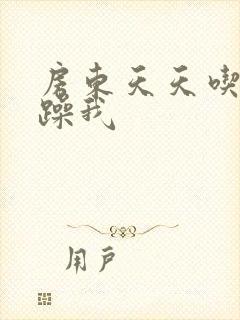 房东天天喫
躁我
用户